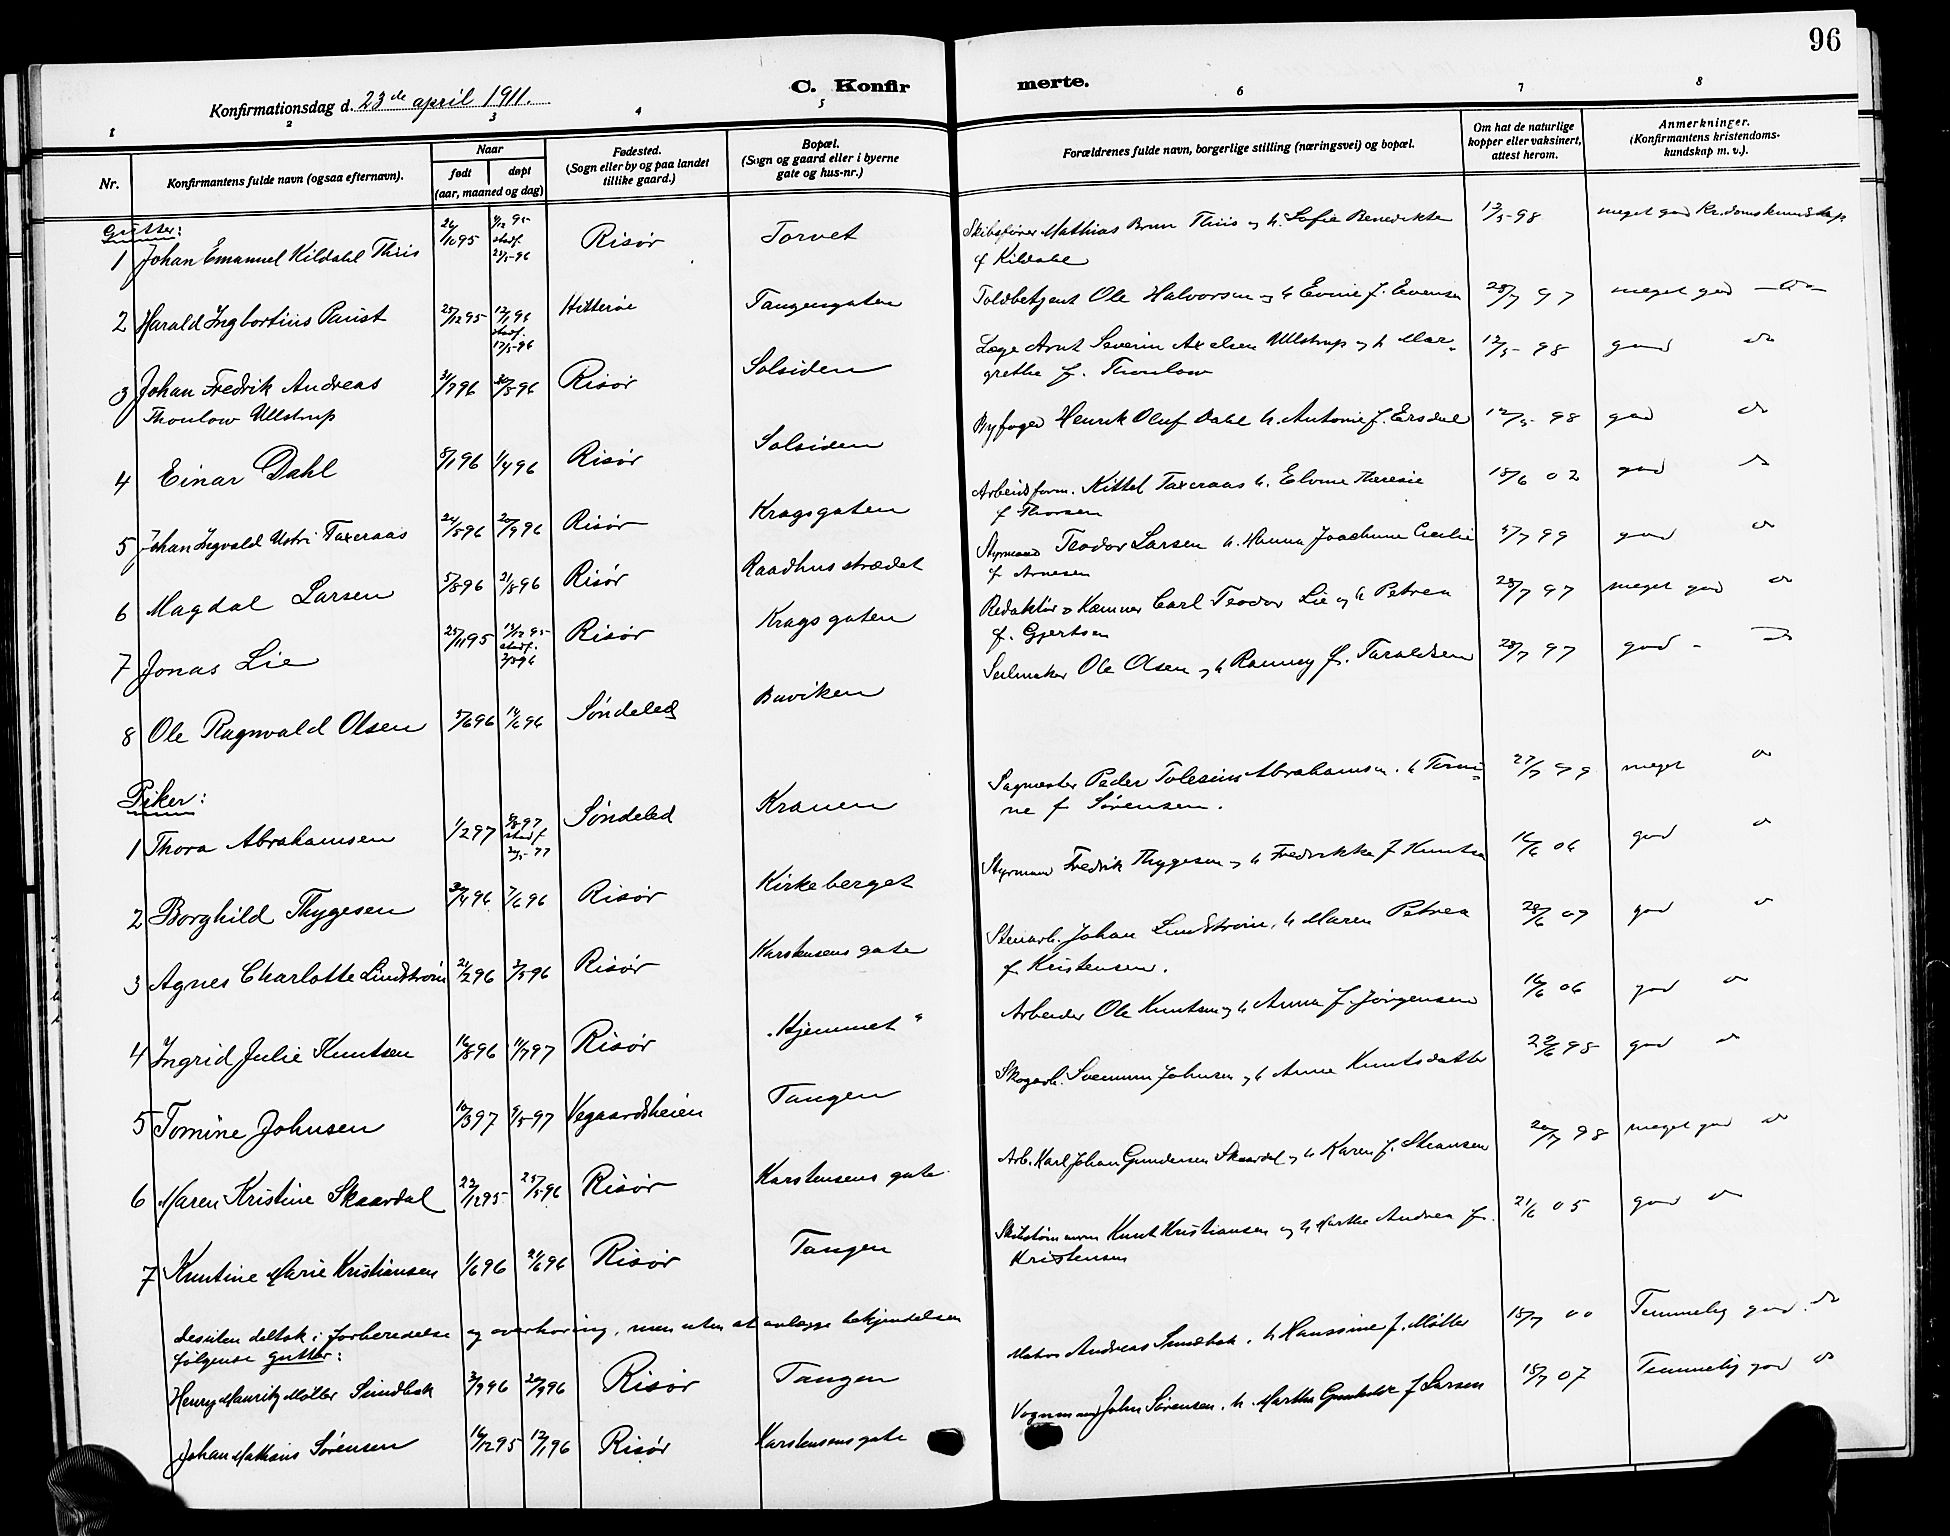 96
C. Konfirmerte.
Konfirmationsdag d. 23de april 1911.
1 2 3 4 5 6 7 8
Nr.
Konfirmantens fulde navn (ogsaa efternavn).
Naar
født døpt
(aar, maaned og dag)
Fødested.
(Sogn eller by og paa landet
tillike gaard.)
Bopæl.
(Sogn og gaard eller i byerne
gate og hus-nr.)
Forældrenes fulde navn, borgerlige stilling (næringsvei) og bopæl.
Om hat de naturlige
kopper eller vaksinert,
attest herom.
Anmerkninger.
(Konfirmantens kristendoms-
kundskap m. v.).
Gutter:
1 Johan Emanuel Kildahl Thiis Risør Torvet Skibsfører Mathias Brun Thiis og h. Sofie Benedikte 12/5-98 meget god Kr.domskundskap
f Kildahl
2 Harald Ingbortius Paust 25/12 95 12/1 96 Hitterøe Tangengaten Toldbetjent Ole Halvorsen og h Evine f. Evensen 28/7 97 meget god do
stadf.
17/5-96
3 Johan Fredrik Andreas 31/7 96 30/8 96 Risør Solsiden Læge Arnt Severin Axelsen Ullstrup og h Mar- 12/5-98 god do
Thoulow Ullstrup grethe f. Thoulow
4 Einar Dahl 8/1 96 1/4 96 Risør Solsiden Byfoged Henrik Oluf Dahl h. Antonie f. Ersdal 12/5-98 god do
5 Johan Ingvald Taxeraas 24/5 96 20/9 96 Risør Kragsgaten Arbeidsform. Kittel Taxeraas h. Elvine Theresie 18/6 02 god do
f Thorsen
6 Magdal Larsen 5/8 96 21/8 96 Risør Raadhusstrædet Styrmand Teodor Larsen h. Hanna Joachime Cecilie 5/7 99 god do
f Arnesen
7 Jonas Lie 25/11 95 Risør Kragsgaten Redaktør & Kæmner Carl Teodor Lie og h Petrea 28/7 97 meget god do
stadf. f. Gjertsen
8 Ole Ragnvald Olsen 5/6 96 14/6 96 Søndeled Buviken Seilmaker Ole Olsen og h Ranney f. Taraldsen 28/7 97 god do
Piker:
1 Thora Abrahamsen 1/2 97 Søndeled Kranen Sagmester Peder Tolesius Abrahamsen. h Tomi- 27/7 99 meget do
stadf. ne f Sørensen.
2 Borghild Thygesen 30/4 96 7/6 96 Risør Kirkeberget Styrmand Fredrik Thygesen og h Fredrikke f Knutsen 16/6 06 god do
3 Agnes Charlotte Lindstrøm 21/2 96 3/5 96 Risør Karstensens gate Stenarb. Johan Lindstrøm, h Maren Petrea 28/6 07 god do
f Kristensen.
4 Ingrid Julie Knutsen 16/8 96 11/7 97 Risør „Hjemmet" Arbeider Ole Knutsen og h Anna f. Jørgensen 16/6 06 god do
5 Tomine Johnsen 10/3 97 9/5-97 Vegaardsheien Tangen Skogarb. Svennum Johnsen og h Anne Knutsdatter 22/6 98 god do
6 Maren Kristine Skaardal 22/12 95 25/5 96 Risør Karstensens gate Arb. Karl Johan Gundersen Skaardal og h Karen f. Steansen 20/7 98 meget god do
7 Knutine Marie Kristiansen 1/6 96 21/6 96 Risør Tangen Skibstømmerm Knut Kristiansen og h Marthe Andrea f. 21/6 05 god do
Kristensen
Desuten deltok i forberedelse og overhøring, men uten at avlægge bekjendelsen
følgende gutter:
Henry Mauritz Møller Sundbek 3/7 96 20/9 96 Risør Tangen Matros Andreas Sundbek. h Hanssine f. Møller 18/7 00 Temmelig god do
Johan Mathius Sørensen 16/12 95 12/1 96 Risør Karstensens gate Vognmand John Sørensen. h. Marthe Gunhild f Larsen 18/7 07 Temmelig god do